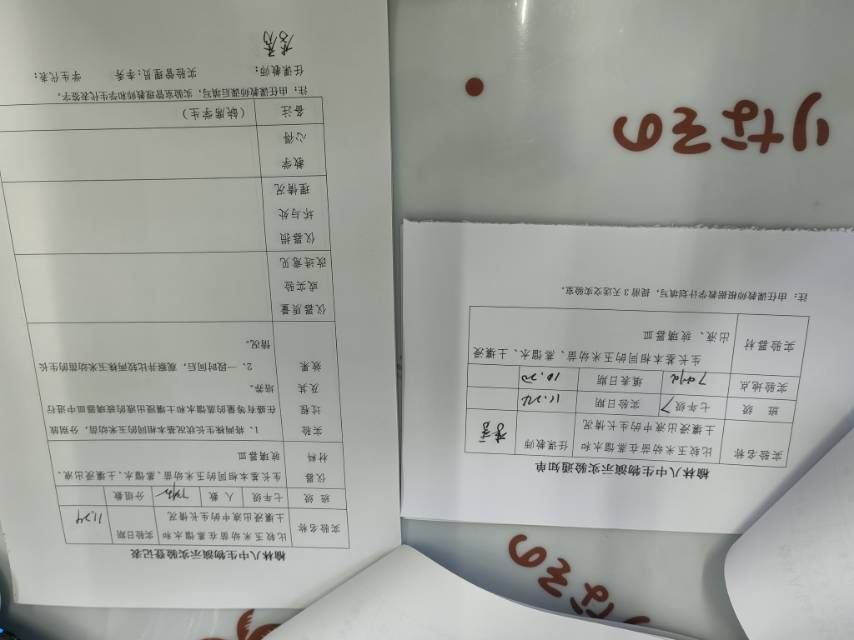 榆林八中生物演示实验通知单
实验名称 比较玉米幼苗在蒸馏水和土壤浸出液中的生长情况 任课教师
班 级 七年级7 实验日期 11.24
实验地点 填表日期 10.20
实验器材 生长基本相同的玉米幼苗、蒸馏水、土壤浸出液、玻璃器皿
注：由任课教师根据教学计划填写，提前3天送交实验室。
榆林八中生物演示实验登记表
实验名称 比较玉米幼苗在蒸馏水和土壤浸出液中的生长情况 实验日期 11.24
班 级 七年级 人 数 分组数
仪器材料 生长基本相同的玉米幼苗、蒸馏水、土壤浸出液、玻璃器皿
实验过程及其效果
1、将两株生长状况基本相同的玉米幼苗，分别放在盛有等量的蒸馏水和土壤浸出液的玻璃器皿中进行培养。
2、一段时间后，观察并比较两株玉米幼苗的生长情况。
仪器质量或实验改进意见
仪器损坏与处理情况
教学心得
备注 （缺席学生）
注：由任课教师课后填写，实验室管理教师和学生代表签字。
任课教师： 实验管理员：李秀 学生代表：